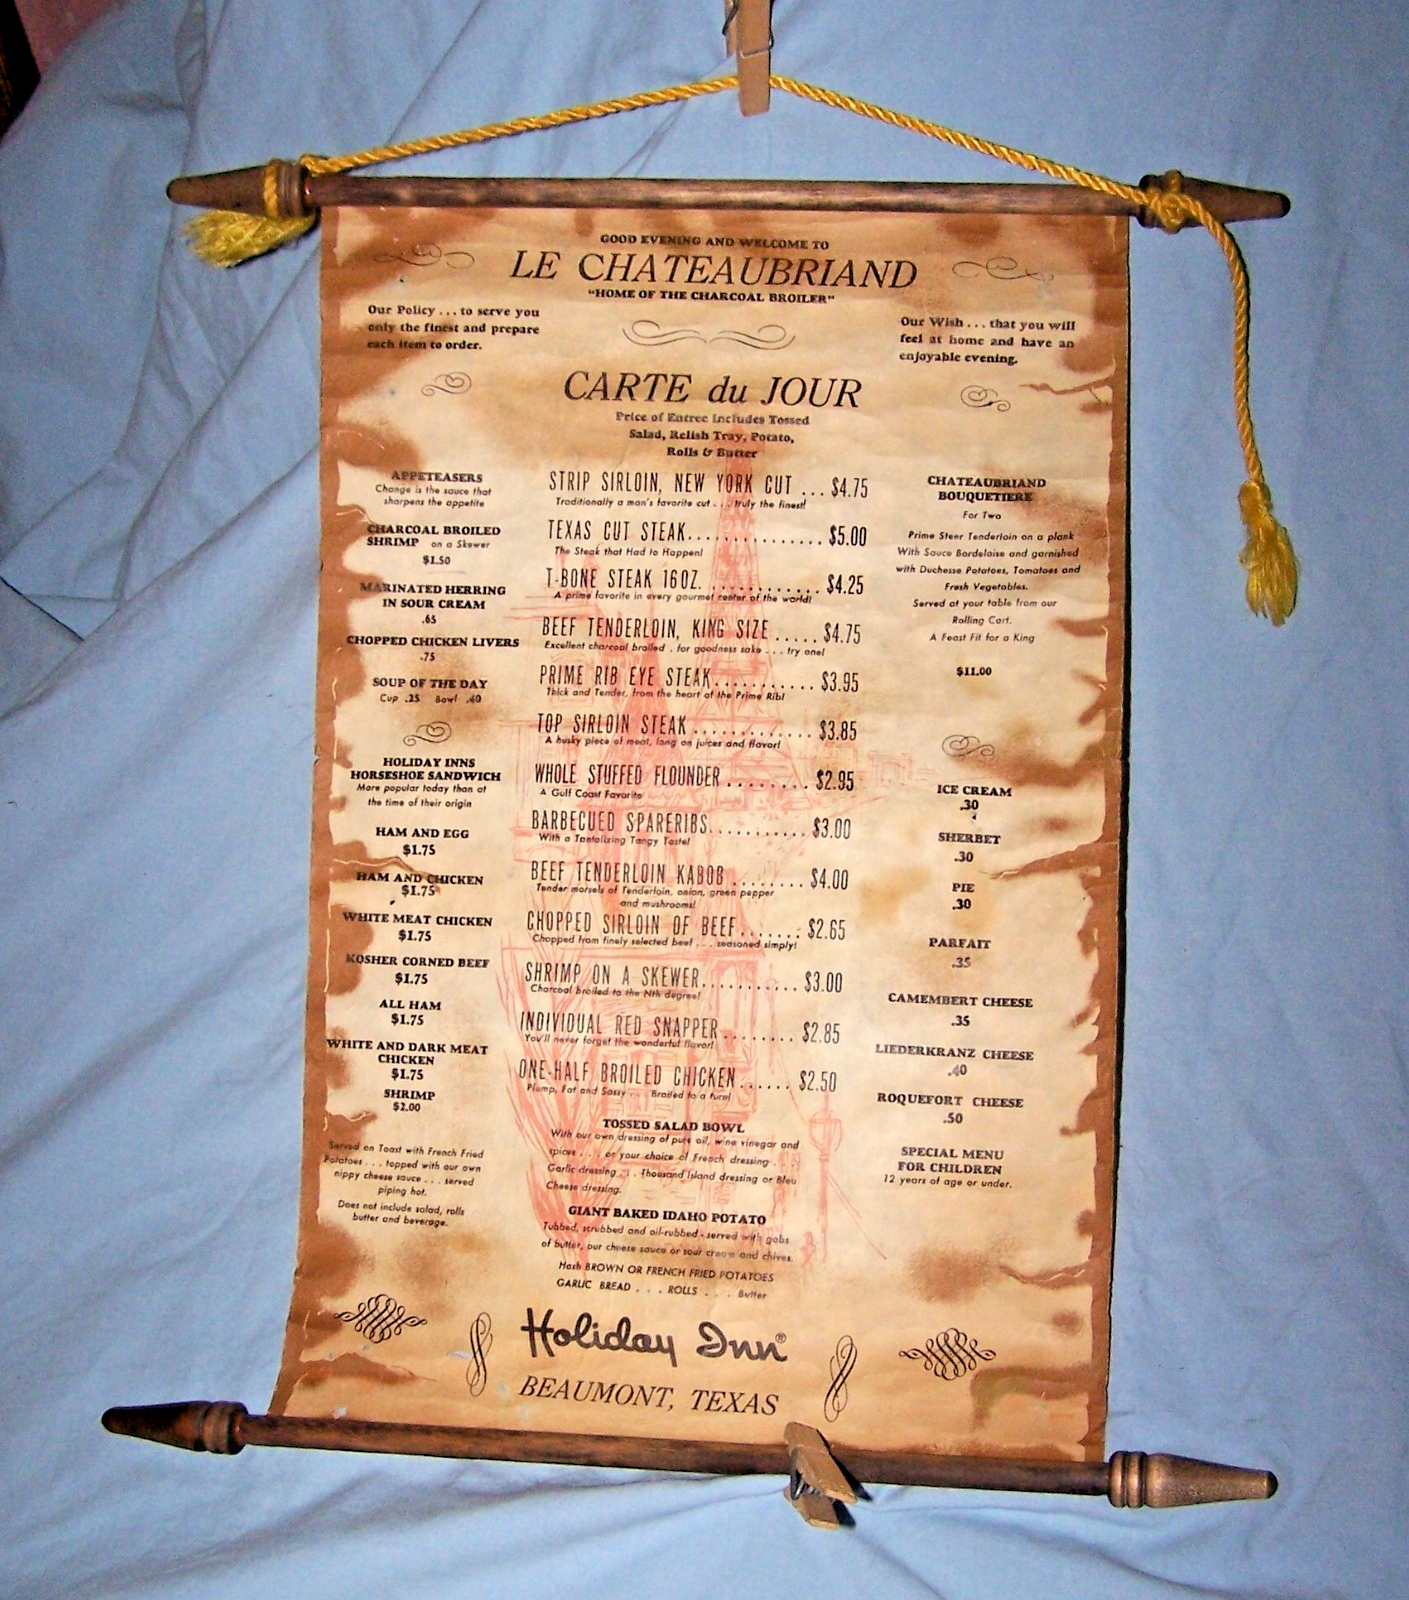 GOOD EVENING AND WELCOME TO
LE CHATEAUBRIAND
"HOME OF THE CHARCOAL BROILER"
Our Policy . . . to serve you
only the finest and prepare
each item to order.
Our Wish . . . that you will
feel at home and have an
enjoyable evening.
CARTE du JOUR
Price of Entree Includes Tossed
Salad, Relish Tray, Potato,
Rolls & Butter
APPETEASERS
Change is the sauce that
sharpens the appetite
CHARCOAL BROILED
SHRIMP on a Skewer
$1.50
MARINATED HERRING
IN SOUR CREAM
.65
CHOPPED CHICKEN LIVERS
.75
SOUP OF THE DAY
Cup .25 Bowl .40
HOLIDAY INNS
HORSESHOE SANDWICH
More popular today than at
the time of their origin
HAM AND EGG
$1.75
HAM AND CHICKEN
$1.75
WHITE MEAT CHICKEN
$1.75
KOSHER CORNED BEEF
$1.75
ALL HAM
$1.75
WHITE AND DARK MEAT
CHICKEN
$1.75
SHRIMP
$2.00
Served on Toast with French Fried
Potatoes . . . topped with our own
nippy cheese sauce . . . served
piping hot.
Does not include salad, rolls
butter and beverage.
STRIP SIRLOIN, NEW YORK CUT ... $4.75
Traditionally a man's favorite cut . . . truly the finest!
TEXAS CUT STEAK............... $5.00
The Steak that Had to Happen!
T-BONE STEAK 16 OZ. ............ $4.25
A prime favorite in every gourmet center of the world!
BEEF TENDERLOIN, KING SIZE ..... $4.75
Excellent charcoal broiled . for goodness sake . . . try one!
PRIME RIB EYE STEAK............ $3.95
Thick and Tender, from the heart of the Prime Rib!
TOP SIRLOIN STEAK ............. $3.85
A husky piece of meat, long on juices and flavor!
WHOLE STUFFED FLOUNDER ......... $2.95
A Gulf Coast Favorite
BARBECUED SPARERIBS............ $3.00
With a Tantalizing Tangy Taste!
BEEF TENDERLOIN KABOB ........ $4.00
Tender morsels of Tenderloin, onion, green pepper
and mushrooms!
CHOPPED SIRLOIN OF BEEF....... $2.65
Chopped from finely selected beef . . . seasoned simply!
SHRIMP ON A SKEWER........... $3.00
Charcoal broiled to the Nth degree!
INDIVIDUAL RED SNAPPER ........ $2.85
You'll never forget the wonderful flavor!
ONE-HALF BROILED CHICKEN ...... $2.50
Plump, Fat and Sassy . . . Broiled to a turn!
TOSSED SALAD BOWL
With our own dressing of pure oil, wine vinegar and
spices . . . or your choice of French dressing . . .
Garlic dressing . . . Thousand Island dressing or Bleu
Cheese dressing.
GIANT BAKED IDAHO POTATO
Tubbed, scrubbed and oil-rubbed - served with gobs
of butter, our cheese sauce or sour cream and chives.
Hash BROWN OR FRENCH FRIED POTATOES
GARLIC BREAD . . . ROLLS . . . Butter
CHATEAUBRIAND
BOUQUETIERE
For Two
Prime Steer Tenderloin on a plank
With Sauce Bordelaise and garnished
with Duchesse Potatoes, Tomatoes and
Fresh Vegetables.
Served at your table from our
Rolling Cart.
A Feast Fit for a King
$11.00
ICE CREAM
.30
SHERBET
.30
PIE
.30
PARFAIT
.35
CAMEMBERT CHEESE
.35
LIEDERKRANZ CHEESE
.40
ROQUEFORT CHEESE
.50
SPECIAL MENU
FOR CHILDREN
12 years of age or under.
Holiday Inn®
BEAUMONT, TEXAS